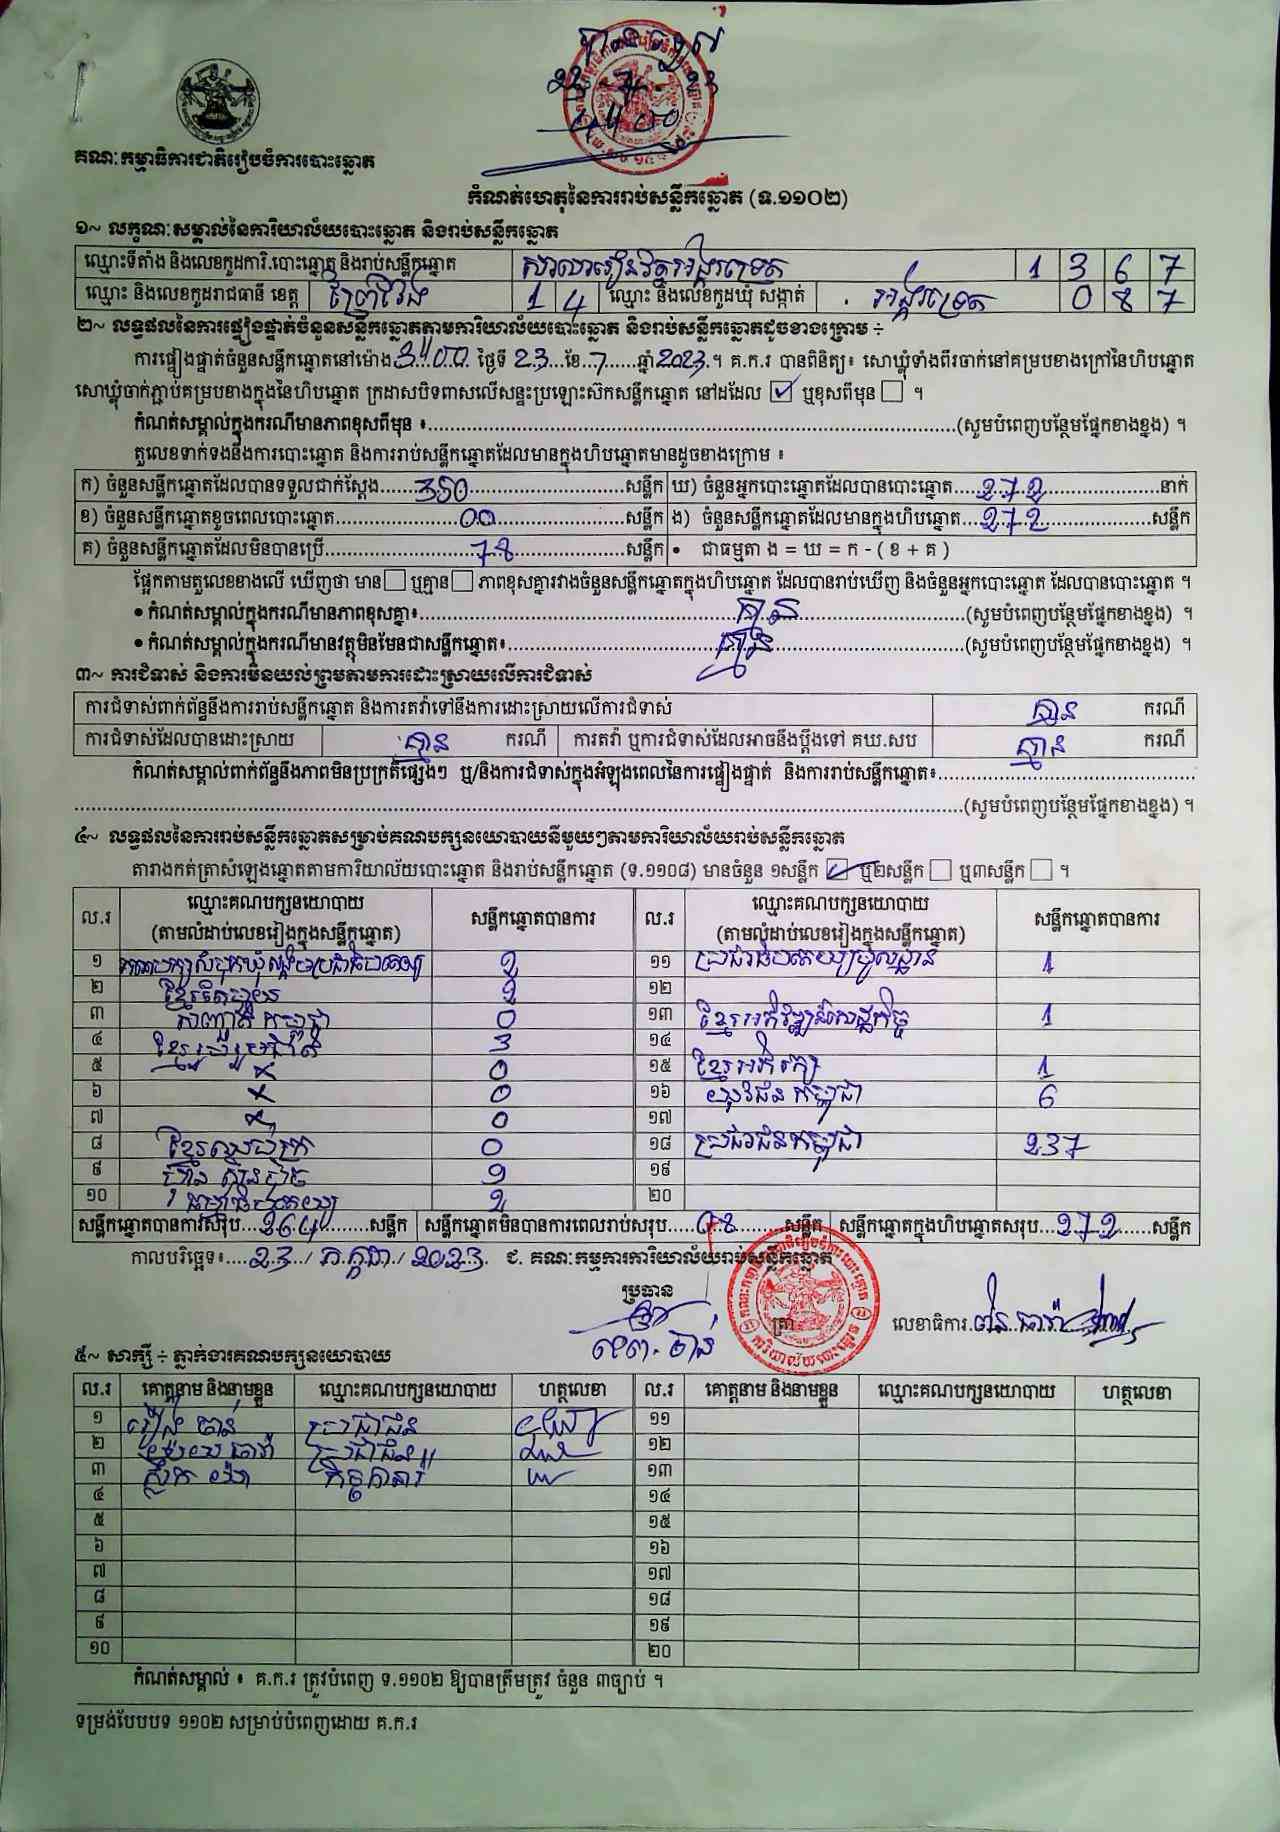 បានឃើញ
23. 7.
4400
គណៈកម្មាធិការជាតិរៀបចំការបោះឆ្នោត
កំណត់ហេតុនៃការរាប់សន្លឹកឆ្នោត (ទ.១១០២)
១~ លក្ខណៈសម្គាល់នៃការិយាល័យបោះឆ្នោត និងរាប់សន្លឹកឆ្នោត
ឈ្មោះទីតាំង និងលេខកូដការិ.បោះឆ្នោត និងរាប់សន្លឹកឆ្នោត សាលារៀនវត្តអង្គរទ្រេត 1 3 6 7
ឈ្មោះ និងលេខកូដរាជធានី ខេត្ត ព្រៃវែង 1 4 ឈ្មោះ និងលេខកូដឃុំ សង្កាត់ អង្គរទ្រេត 0 8 7
២~ លទ្ធផលនៃការផ្ទៀងផ្ទាត់ចំនួនសន្លឹកឆ្នោតតាមការិយាល័យបោះឆ្នោត និងរាប់សន្លឹកឆ្នោតដូចខាងក្រោម ÷
ការផ្ទៀងផ្ទាត់ចំនួនសន្លឹកឆ្នោតនៅម៉ោង 3:00 ថ្ងៃទី 23 ខែ 7 ឆ្នាំ 2023 ។ គ.ក.រ បានពិនិត្យ៖ សោឃ្លុំទាំងពីរចាក់នៅគម្របខាងក្រៅនៃហិបឆ្នោត
សោឃ្លុំចាក់ភ្ជាប់គម្របខាងក្នុងនៃហិបឆ្នោត ក្រដាសបិទពាសលើសន្ទះប្រឡោះស៊កសន្លឹកឆ្នោត នៅដដែល ☑ ឬខុសពីមុន ☐ ។
កំណត់សម្គាល់ក្នុងករណីមានភាពខុសពីមុន ៖ (សូមបំពេញបន្ថែមផ្នែកខាងខ្នង) ។
តួលេខទាក់ទងនឹងការបោះឆ្នោត និងការរាប់សន្លឹកឆ្នោតដែលមានក្នុងហិបឆ្នោតមានដូចខាងក្រោម ៖
ក) ចំនួនសន្លឹកឆ្នោតដែលបានទទួលជាក់ស្ដែង 350 សន្លឹក ឃ) ចំនួនអ្នកបោះឆ្នោតដែលបានបោះឆ្នោត 272 នាក់
ខ) ចំនួនសន្លឹកឆ្នោតខូចពេលបោះឆ្នោត 00 សន្លឹក ង) ចំនួនសន្លឹកឆ្នោតដែលមានក្នុងហិបឆ្នោត 272 សន្លឹក
គ) ចំនួនសន្លឹកឆ្នោតដែលមិនបានប្រើ 78 សន្លឹក • ជាធម្មតា ង = ឃ = ក - ( ខ + គ )
ផ្អែកតាមតួលេខខាងលើ ឃើញថា មាន ☐ ឬគ្មាន ☐ ភាពខុសគ្នារវាងចំនួនសន្លឹកឆ្នោតក្នុងហិបឆ្នោត ដែលបានរាប់ឃើញ និងចំនួនអ្នកបោះឆ្នោត ដែលបានបោះឆ្នោត ។
• កំណត់សម្គាល់ក្នុងករណីមានភាពខុសគ្នា៖ គ្មាន (សូមបំពេញបន្ថែមផ្នែកខាងខ្នង) ។
• កំណត់សម្គាល់ក្នុងករណីមានវត្ថុមិនមែនជាសន្លឹកឆ្នោត៖ គ្មាន (សូមបំពេញបន្ថែមផ្នែកខាងខ្នង) ។
៣~ ការជំទាស់ និងការមិនយល់ព្រមតាមការដោះស្រាយលើការជំទាស់
ការជំទាស់ពាក់ព័ន្ធនឹងការរាប់សន្លឹកឆ្នោត និងការតវ៉ាទៅនឹងការដោះស្រាយលើការជំទាស់ គ្មាន ករណី
ការជំទាស់ដែលបានដោះស្រាយ គ្មាន ករណី ការតវ៉ា ឬការជំទាស់ដែលអាចនឹងប្ដឹងទៅ គឃ.សប គ្មាន ករណី
កំណត់សម្គាល់ពាក់ព័ន្ធនឹងភាពមិនប្រក្រតីផ្សេងៗ ឬ/និងការជំទាស់ក្នុងអំឡុងពេលនៃការផ្ទៀងផ្ទាត់ និងការរាប់សន្លឹកឆ្នោត៖
(សូមបំពេញបន្ថែមផ្នែកខាងខ្នង) ។
៤~ លទ្ធផលនៃការរាប់សន្លឹកឆ្នោតសម្រាប់គណបក្សនយោបាយនីមួយៗតាមការិយាល័យរាប់សន្លឹកឆ្នោត
តារាងកត់ត្រាសំឡេងឆ្នោតតាមការិយាល័យបោះឆ្នោត និងរាប់សន្លឹកឆ្នោត (ទ.១១០៨) មានចំនួន ១សន្លឹក ☑ ឬ២សន្លឹក ☐ ឬ៣សន្លឹក ☐ ។
ល.រ ឈ្មោះគណបក្សនយោបាយ (តាមលំដាប់លេខរៀងក្នុងសន្លឹកឆ្នោត) សន្លឹកឆ្នោតបានការ ល.រ ឈ្មោះគណបក្សនយោបាយ (តាមលំដាប់លេខរៀងក្នុងសន្លឹកឆ្នោត) សន្លឹកឆ្នោតបានការ
១ គណបក្សសំបុកឃ្មុំសង្គមប្រជាធិបតេយ្យ 2 ១១ ប្រជាធិបតេយ្យមូលដ្ឋាន 1
២ ខ្មែរតែមួយ 2 ១២
៣ សញ្ជាតិកម្ពុជា 0 ១៣ ខ្មែរអភិវឌ្ឍន៍សេដ្ឋកិច្ច 1
៤ ខ្មែររួបរួមជាតិ 3 ១៤
៥ x 0 ១៥ ខ្មែរអភិរក្ស 1
៦ x 0 ១៦ យុវជនកម្ពុជា 6
៧ x 0 ១៧
៨ ខ្មែរឈប់ក្រ 0 ១៨ ប្រជាជនកម្ពុជា 237
៩ ហ្វ៊ុនស៊ិនប៉ិច 9 ១៩
១០ ធម្មាធិបតេយ្យ 2 ២០
សន្លឹកឆ្នោតបានការសរុប 264 សន្លឹក សន្លឹកឆ្នោតមិនបានការពេលរាប់សរុប 08 សន្លឹក សន្លឹកឆ្នោតក្នុងហិបឆ្នោតសរុប 272 សន្លឹក
កាលបរិច្ឆេទ៖ 23 / កក្កដា / 2023 ជ. គណៈកម្មការការិយាល័យរាប់សន្លឹកឆ្នោត
ប្រធាន
ត្រា
លេខាធិការ
៥~ សាក្សី ÷ ភ្នាក់ងារគណបក្សនយោបាយ
ល.រ គោត្តនាម និងនាមខ្លួន ឈ្មោះគណបក្សនយោបាយ ហត្ថលេខា ល.រ គោត្តនាម និងនាមខ្លួន ឈ្មោះគណបក្សនយោបាយ ហត្ថលេខា
១ ប្រជាជន ១១
២ ប្រជាជន ១២
៣ ១៣
៤ ១៤
៥ ១៥
៦ ១៦
៧ ១៧
៨ ១៨
៩ ១៩
១០ ២០
កំណត់សម្គាល់ ៖ គ.ក.រ ត្រូវបំពេញ ទ.១១០២ ឱ្យបានត្រឹមត្រូវ ចំនួន ៣ច្បាប់ ។
ទម្រង់បែបបទ ១១០២ សម្រាប់បំពេញដោយ គ.ក.រ